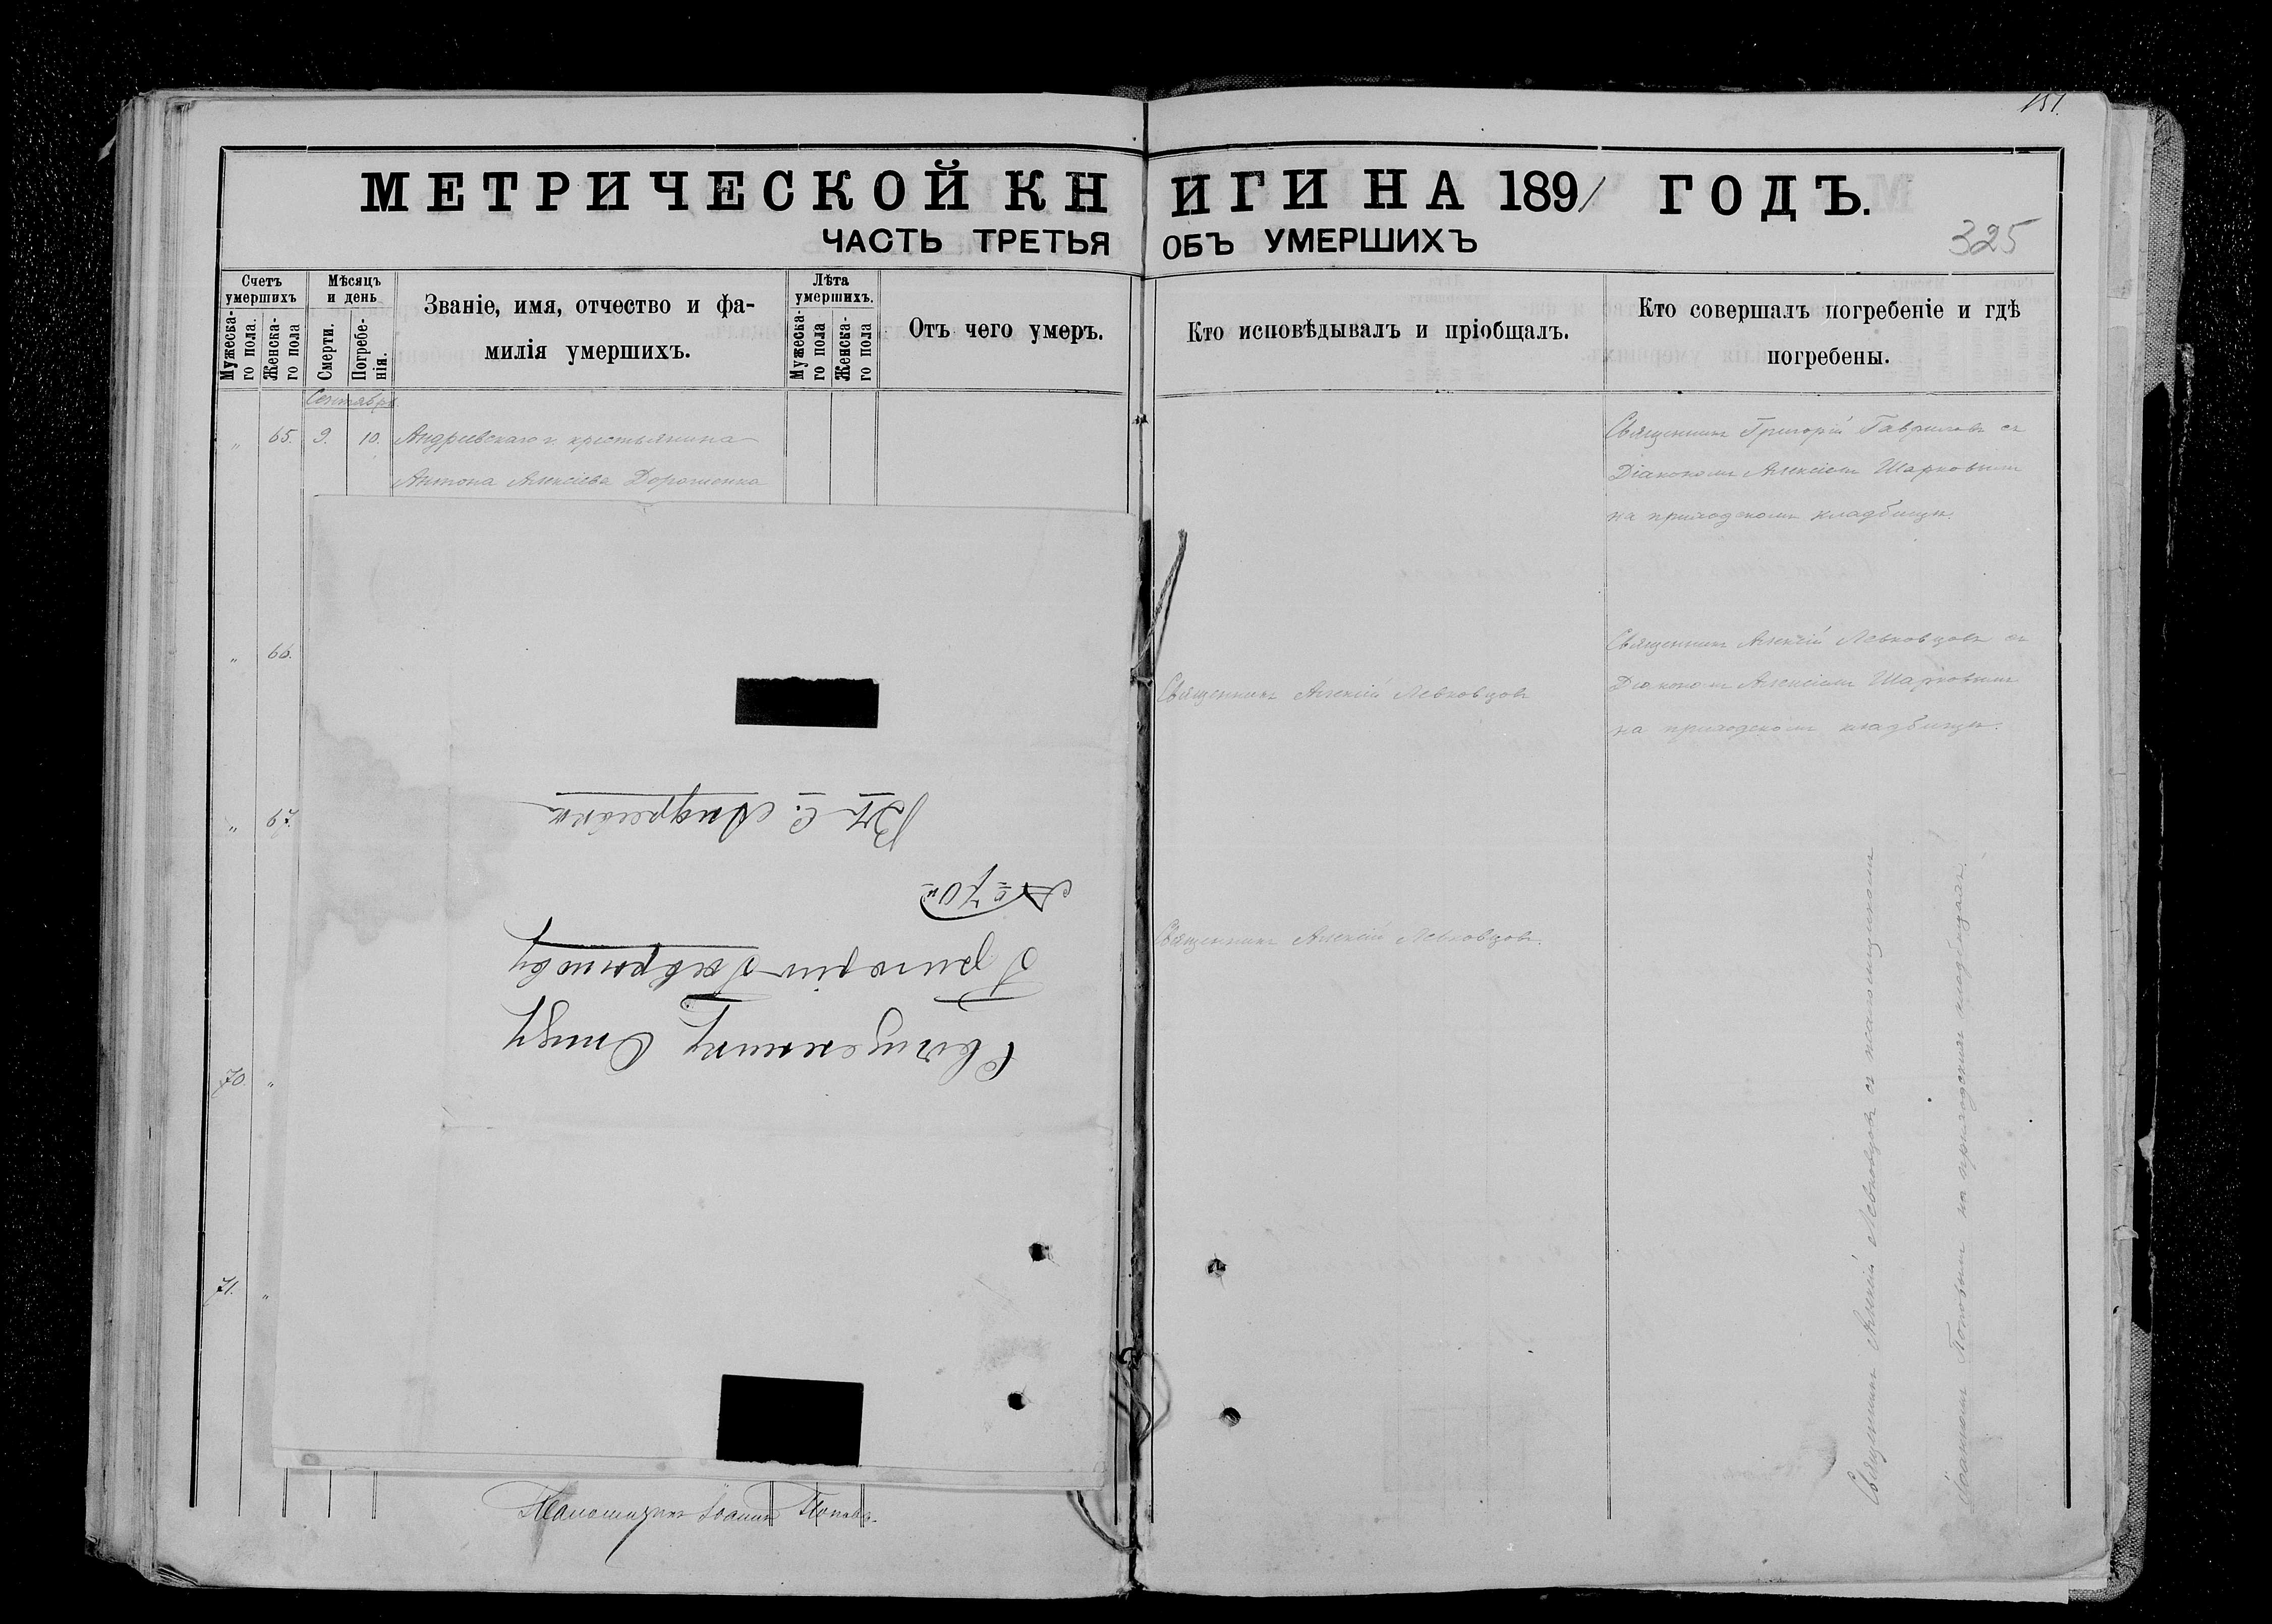 151.
МЕТРИЧЕСКОЙ КНИГИ НА 1891 ГОДЪ.
ЧАСТЬ ТРЕТЬЯ ОБЪ УМЕРШИХЪ
325
Счетъ умершихъ
Мужеска-го пола.
Женска-го пола
Мѣсяцъ и день
Смерти.
Погребе-нія.
Званіе, имя, отчество и фа-
милія умершихъ.
Лѣта умершихъ.
Мужеска-го пола
Женска-го пола
Отъ чего умеръ.
Кто исповѣдывалъ и пріобщалъ.
Кто совершалъ погребеніе и гдѣ
погребены.
Сентябрь
„ 65. 9. 10. Андреевскаго крестьянина
Антона Алексіева Дорошенка
Священникъ Григорій Гавриловъ съ
Діакономъ Алексіемъ Шарковымъ
на приходскомъ кладбищѣ.
„ 66.
Священникъ Алексій Левковцовъ
Священникъ Алексій Левковцовъ съ
Діакономъ Алексіемъ Шарковымъ
на приходскомъ кладбищѣ.
„ 67.
Священникъ Алексій Левковцовъ.
70. „
71. „
Священнику Отцу
Григорію Гаврилову
№ 70
Въ с. Андреевки
Священникъ Алексій Левковцовъ съ псаломщикомъ
Іоанномъ Поповымъ на приходскомъ кладбищѣ.
Псаломщикъ Іоаннъ Поповъ.